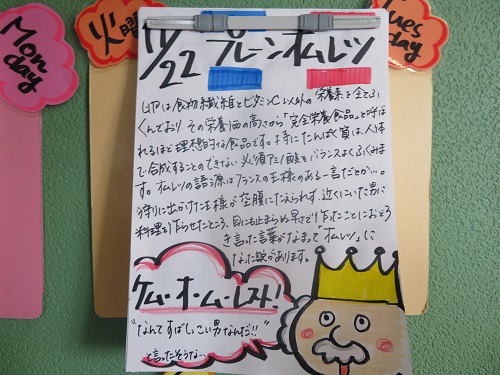 Monday
火曜
Tuesday
11/22 プレーンオムレツ
は食物繊維とビタミンC以外の栄養素を全てふ
くんでおり その栄養価の高さから「完全栄養食品」と呼ば
れるほど理想的な食品です。特にたんぱく質は、人体
で合成することのできない必須アミノ酸をバランスよくふくみま
す。オムレツの語源はフランスの王様のある一言だとか…。
狩りに出かけた王様が空腹にたえられず、近くにいた男に
料理を作らせたところ、目にも止まらぬ早さで作ったことにおどろ
き言った言葉がなまって「オムレツ」に
なった説があります。
ケムーオムーレスト!
"なんてすばしっこい男なんだ!!"
と言ったそうな…